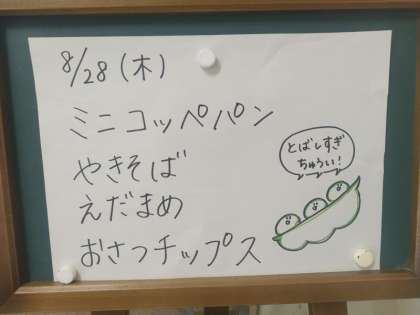 8/28 (木)
ミニコッペパン
やきそば
えだまめ
おさつチップス
とばしすぎ
ちゅうい!